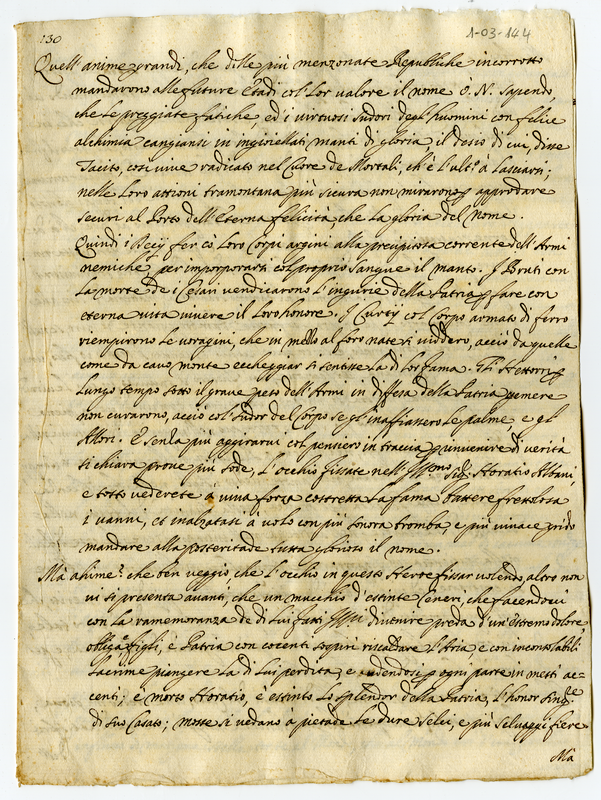 130
1-03-144
Quell'anime grandi, che delle più menzonate Republiche incorrotto
mandarono alle future Etadi col'lor valore il nome ò. N. Sapendo,
che le preggiate fatiche, ed i virtuosi sudori degl'huomini con felice
alchimia cangiansi in ingioiellati manti di gloria, il desio di cui, disse
Tacito, così vive radicato nel Cuore de Mortali, ch'è l'ult.º à lasciarsi;
nelle loro attioni tramontana più sicura non mirarono p approdare
securi al Porto dell'Eterna felicità, che la gloria del nome.
Quindi i Decij fer cò loro Corpi argini alla precipitosa corrente dell'Armi
nemiche per imporporarsi col proprio sangue il manto. J Bruti con
la morte de i Cesari vendicarono l'ingiurie della Patria p fare con
eterna vita vivere il loro honore. J Curtij col Corpo armato di ferro
riempirono le voragini, che in mezzo al foro nate si viddero, acciò da quelle
come da cavo monte eccheggiar si sentisse la di lor fama. Gli Hettorri p
lungo tempo sotto il grave peso dell'Armi in diffesa della Patria gemere
non curarono, acciò col'sudor del Corpo se gl'inaffiassero le palme, e gl'
Allori. E senza più aggirarvi col pensiero in traccia p rinvenire di verità
si chiara prove più sode, l'occhio fissate nell'Jll.mo Sig.r Horatio Albani,
e tosto vederete à viva forza costretta la fama battere frettolosa
i vanni, et inalzatasi à volo con più sonora tromba, e più vivace grido
mandare alla posteritade tutta glorioso il nome.
Mà ahime? che ben veggio, che l'occhio in questo Heroe fissar volendo, altro non
vi si presenta avanti, che un mucchio d'estinte Ceneri, che facendoci
con la ramemoranza de di Lui fatti divenire preda d'un'estremo dolore
obliga i figli, e Patria con cocenti sospiri riscaldare l'Aria, e con inconsolabili
lacrime piangere la di Lui perdita, e udendosi p ogni parte in mesti ac=
centi; è morto Horatio, è estinto lo splendor della Patria, l'honor
di suo Casato; mosse si vedano à pietade le dure selci, e più selvaggi fiere.
Mà